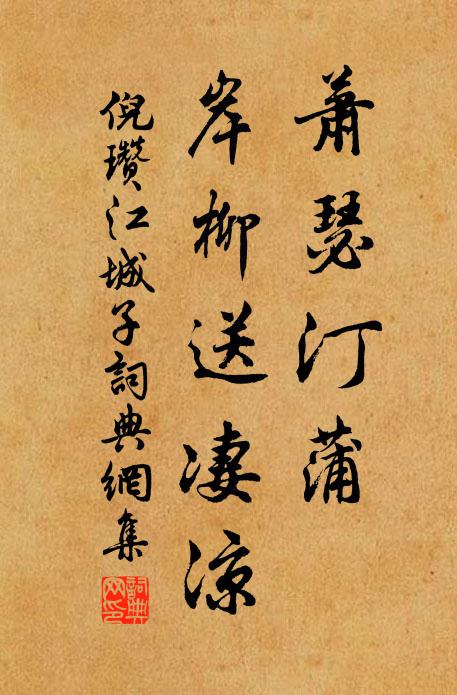 蕭瑟汀蒲
岸柳送凄涼
倪瓚江城子詞典網集
詞典网印